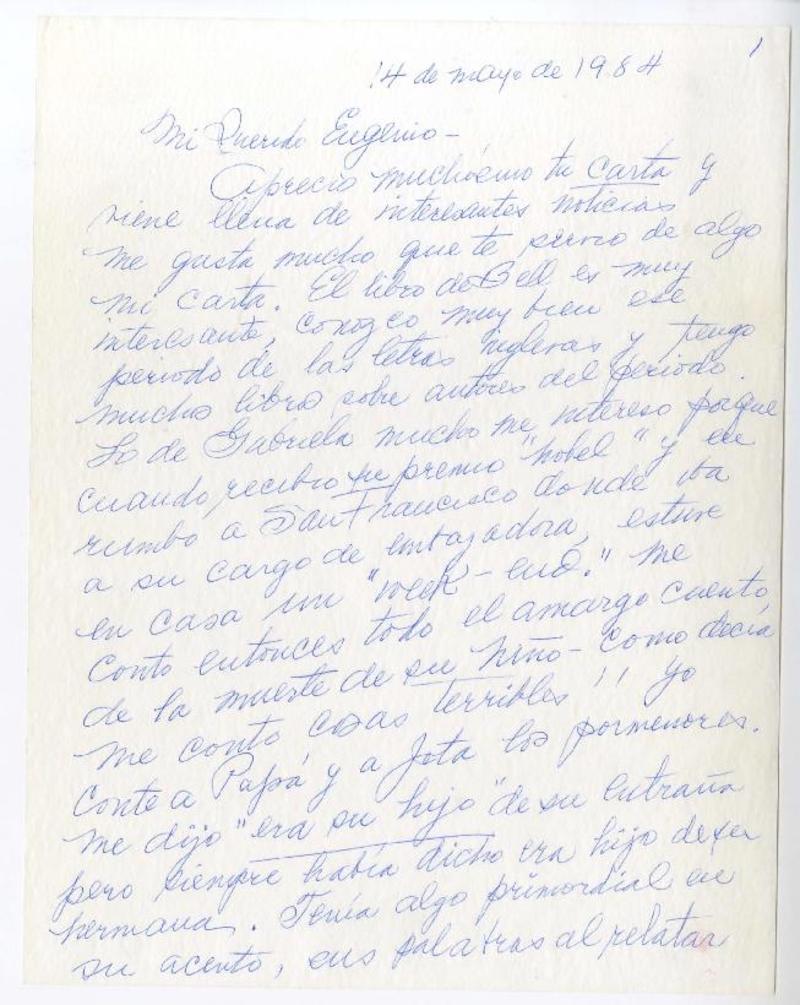 1
14 de mayo de 1984
Mi Querido Eugenio—
Aprecio muchísimo tu carta y
viene llena de interesantes noticias
me gusta mucho que te sirvio de algo
mi carta. El libro de Bell es muy
interesante, conozco muy bien ese
periodo de las letras inglesas y tengo
mucho libro sobre autores del periodo.
Lo de Gabriela mucho me intereso porque
cuando recibio su premio "nobel" y en
rumbo a San Francisco donde iba
a su cargo de embajadora, estuve
en casa un "week-end." Me
conto entonces todo el amargo cuento
de la muerte de su niño - como decía
me conto cosas terribles!! Yo
conte a Papá y a Jota los pormenores.
Me dijo "era su hijo" de su entraña
pero siempre había dicho era hijo de su
hermana. Tenía algo primordial en
su acento, sus palabras al relatar